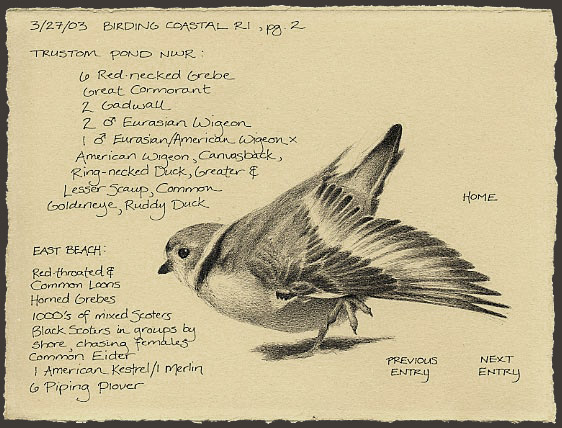 3/27/03 BIRDING COASTAL RI, pg. 2
TRUSTOM POND NWR:
6 Red-necked Grebe
Great Cormorant
2 Gadwall
2 ♂ Eurasian Wigeon
1 ♂ Eurasian/American Wigeon x
American Wigeon, Canvasback,
Ring-necked Duck, Greater &
Lesser Scaup, Common
Goldeneye, Ruddy Duck
HOME
EAST BEACH:
Red-throated &
Common Loons
Horned Grebes
1000's of mixed Scoters
Black Scoters in groups by
shore, chasing females
Common Eider
1 American Kestrel/1 Merlin
6 Piping Plover
PREVIOUS ENTRY
NEXT ENTRY